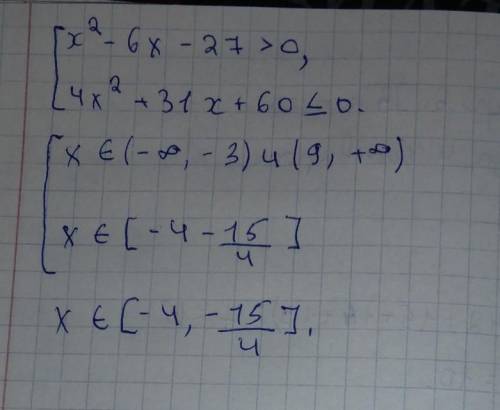 [x² - 6x - 27 > 0,
[4x² + 31x + 60 ≤ 0.
[x ∈ (-∞, -3) u (9, +∞)
x ∈ [-4 - 15/4]
x ∈ [-4, -15/4].